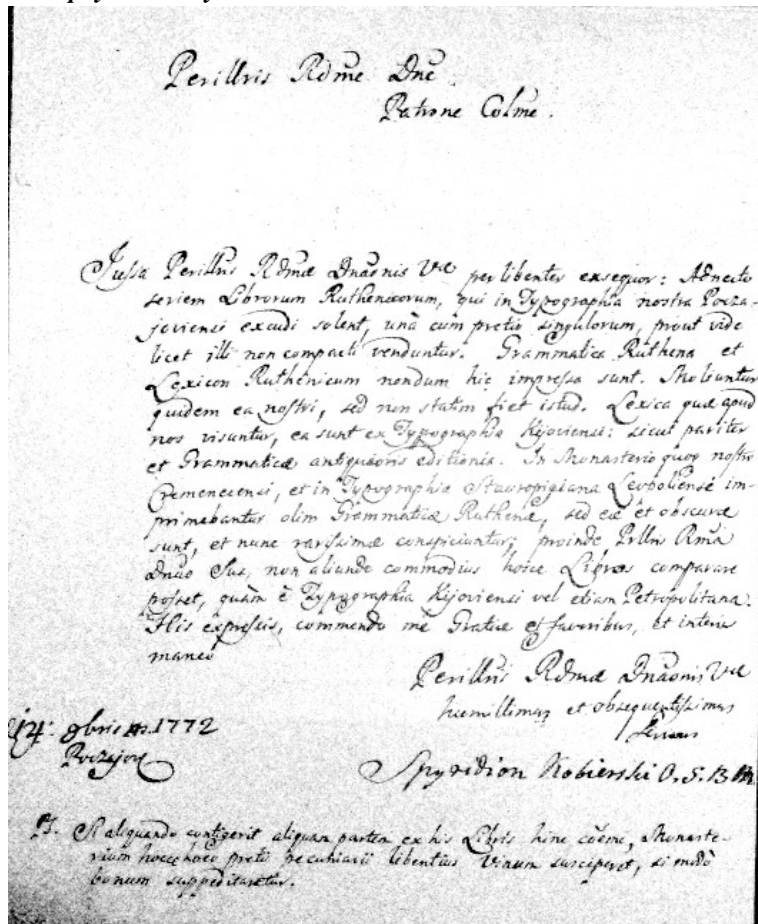 Perillris Rdme Dne
Patrone Colme.
Jussa Perillris Rdmæ Dnaonis Vræ perlibenter exsequor: Adnecto
seriem Librorum Ruthenicorum, qui in Typographia nostra Pocza-
joviensi excudi solent, unà cum pretio singulorum, prout vide
licet illi non compacti venduntur. Grammatica Ruthena et
Lexicon Ruthenicum nondum hic impressa sunt. Moliuntur
quidem ea nostri, sed non statim fiet istud. Lexica quæ apud
nos visuntur, ea sunt ex Typographia Kijoviensi: sicut pariter
et Grammaticæ antiquioris editionis. In Monasterio quoq nostro
Cremenecensi, et in Typographia Stauropigiana Leopoliensi im-
primebantur olim Grammaticæ Ruthenæ, sed eæ et obscuræ
sunt, et nunc rarissimæ conspiciuntur; proinde Prllris Rma
Dnao Sua, non aliunde commodius hosce Libros comparare
posset, quàm è Typographia Kijoviensi vel etiam Petropolitana.
His expressis, commendo me Gratiæ et favoribus, et interim
maneo
Perillris Rdmæ Dnaonis Vræ
humillimus et obsequentissimus
Servus
14: 9bris 1772
Poczajov
Spyridion Kobierski O.S.B.M.
PS. Si aliquando contigerit aliquam partem ex his Libris hinc coëme, Monaste-
rium hocce loco pretii pecuniarii libentius Vinum susciperet, si modò
bonum suppeditaretur.